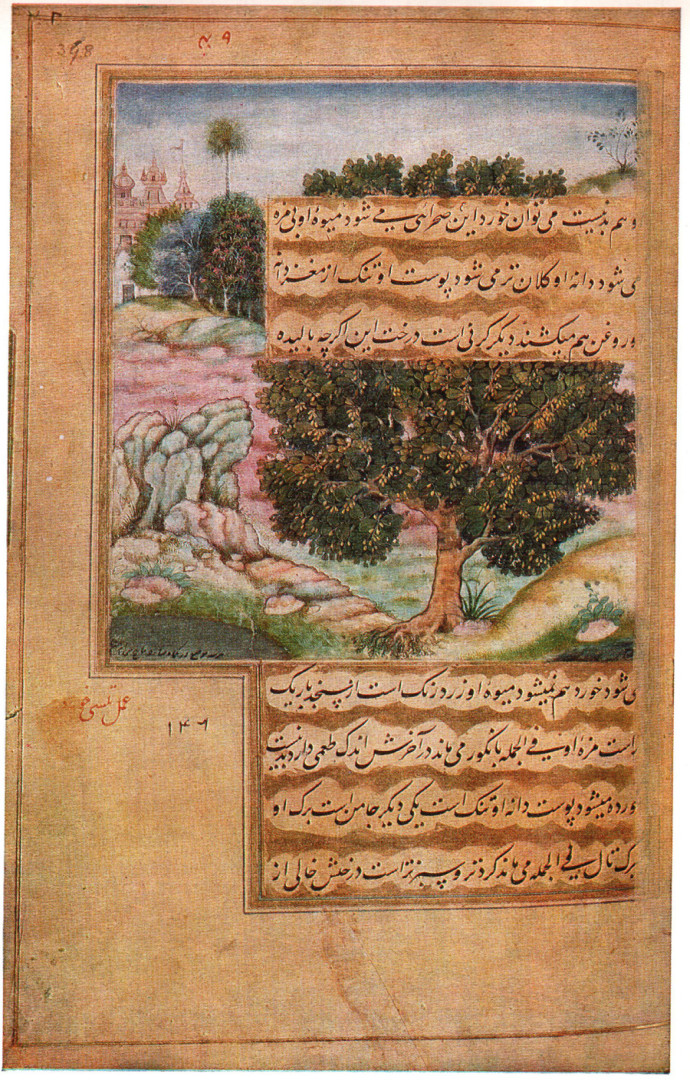 398
و هم بد نیست می توان خورد این صحرائی می شود میوهٔ او بی مزه
می شود دانه او کلان تر می شود پوست او تنک از مغز دانهٔ
او روغن هم میکشند دیگر کرنی است درخت این اگرچه بالیده
می شود خورد هم نمیشود میوه او زرد رنک است از سنجد باریک
تر است مزه او فی الجمله بانکور می ماند در آخرش اندک طعمی دارد بد نیست
خورده میشود پوست دانه او تنک است یکی دیکر جامن است برک او
ببرک تال فی الجمله می ماند کرد تر و سبز تر است درختش خالی از
عمل تلسی خورد
۱۴۶